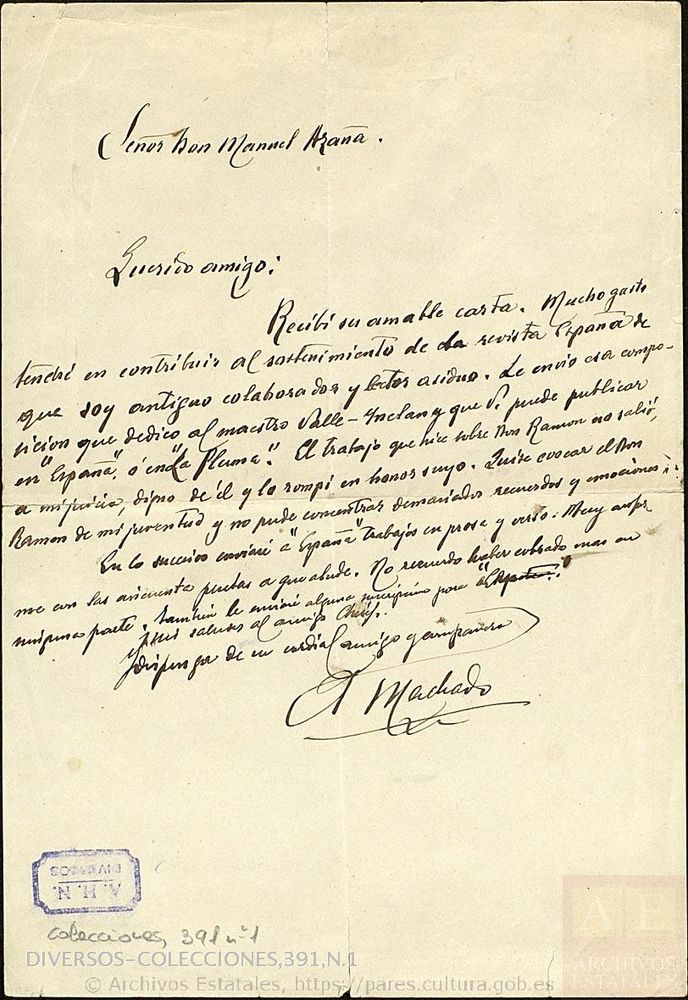 Señor Don Manuel Azaña.
Querido amigo:
Recibí su amable carta. Mucho gusto
tendré en contribuir al sostenimiento de la revista España de
que soy antiguo colaborador y lector asiduo. Le envio esa compo-
sicion que dedico al maestro Valle-Inclan y que V. puede publicar
en "España" ó en "La Pluma". El trabajo que hice sobre Don Ramon no salió,
a mi juicio, digno de él y lo rompí en honor suyo. Quise evocar el Don
Ramon de mi juventud y no pude concentrar demasiados recuerdos y emociones
En lo sucesivo enviaré a "España" trabajos en prosa y verso. Muy
me con las cincuenta pesetas a que alude. No recuerdo haber cobrado mas en
ninguna parte. Tambien le enviaré alguna para
mis saludos al amigo
y disponga de un cordial amigo y compañero
A Machado
A. H. N.
DIVERSOS
colecciones, 391 nº1
DIVERSOS-COLECCIONES,391,N.1
© Archivos Estatales, https://pares.cultura.gob.es
A E
ARCHIVOS
ESTATALES